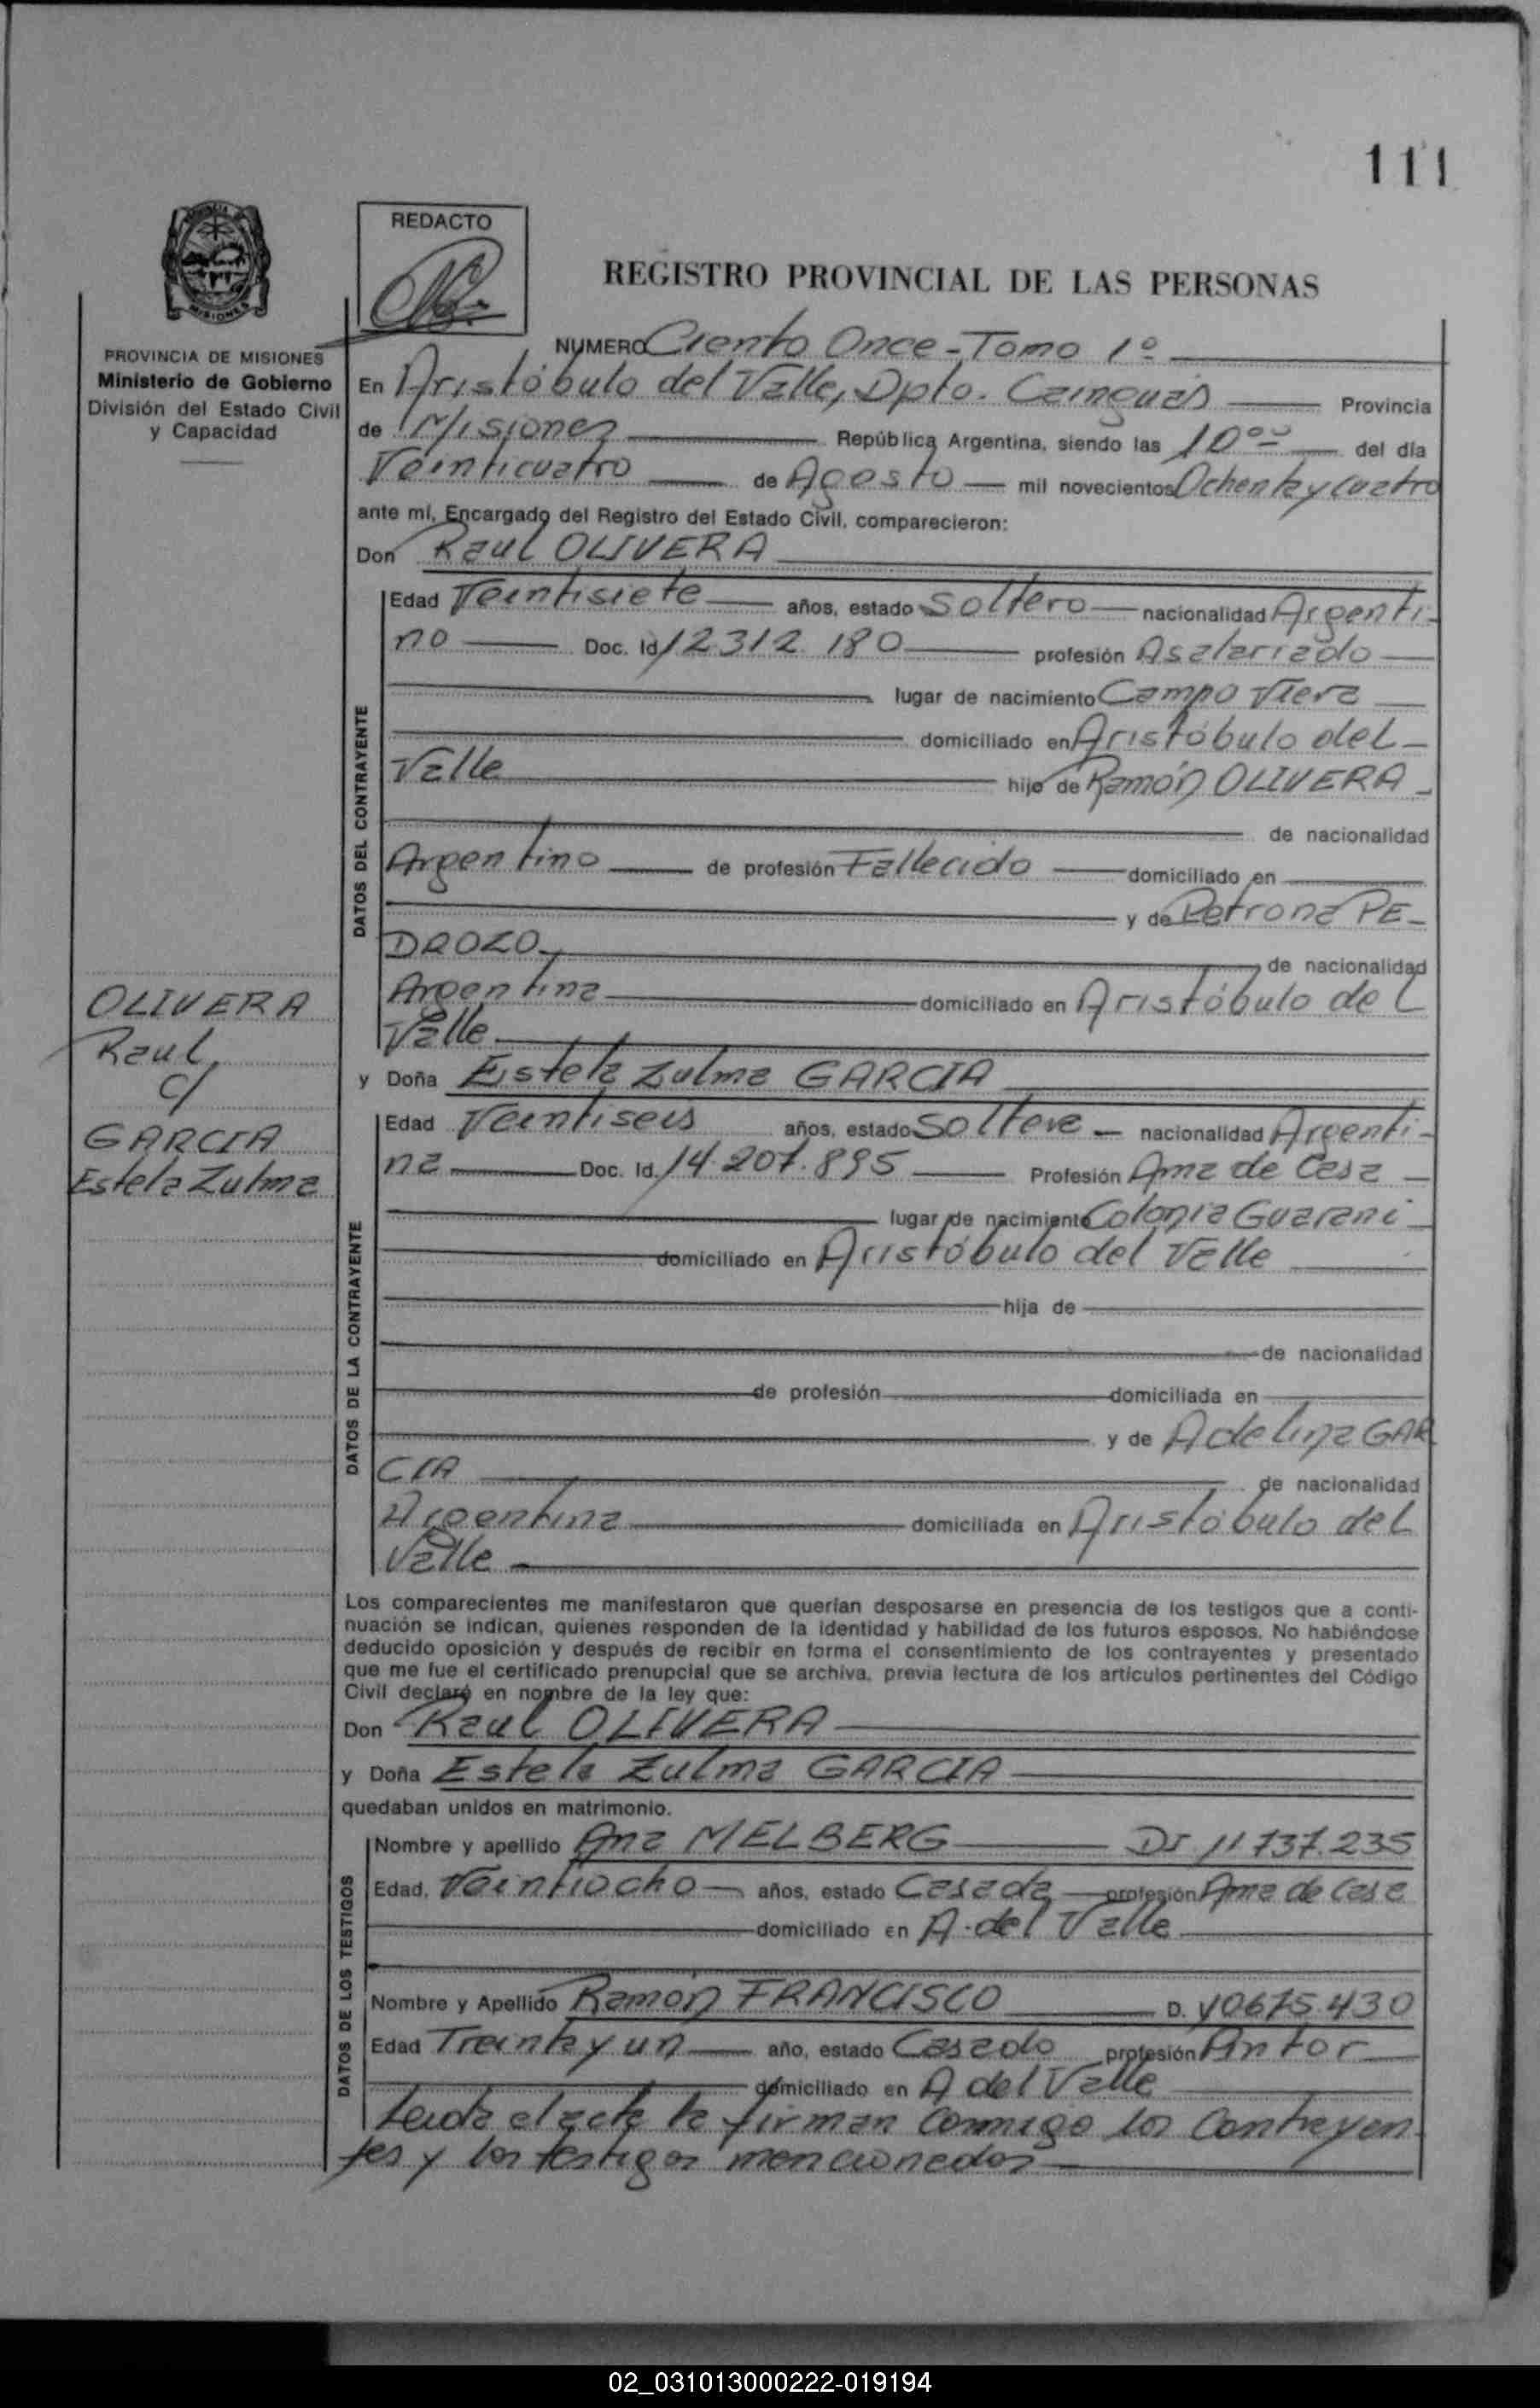 111
REDACTO
REGISTRO PROVINCIAL DE LAS PERSONAS
MISIONES
PROVINCIA DE MISIONES
Ministerio de Gobierno
División del Estado Civil
y Capacidad
NUMERO Ciento Once - Tomo 1º
En Aristóbulo del Valle, Dpto. Cainguás Provincia
de Misiones República Argentina, siendo las 10ºº del día
Veinticuatro de Agosto mil novecientos Ochenta y cuatro
ante mí, Encargado del Registro del Estado Civil, comparecieron:
Don Raul OLIVERA
DATOS DEL CONTRAYENTE
Edad Veintisiete años, estado Soltero nacionalidad Argenti-
no Doc. Id. 12312.180 profesión Asalariado
lugar de nacimiento Campo Viera
domiciliado en Aristóbulo del
Valle hijo de Ramón OLIVERA
de nacionalidad
Argentino de profesión Fallecido domiciliado en
y de Petrona PE-
DROZO de nacionalidad
Argentina domiciliado en Aristóbulo del
Valle
OLIVERA
Raul
c/
GARCIA
Estela Zulma
y Doña Estela Zulma GARCIA
DATOS DE LA CONTRAYENTE
Edad Veintiseis años, estado Soltera nacionalidad Argenti-
na Doc. Id. 14.207.895 Profesión Ama de Casa
lugar de nacimiento Colonia Guarani
domiciliado en Aristóbulo del Valle
hija de
de nacionalidad
de profesión domiciliada en
y de Adelina GAR
CIA de nacionalidad
Argentina domiciliada en Aristóbulo del
Valle
Los comparecientes me manifestaron que querían desposarse en presencia de los testigos que a conti-
nuación se indican, quienes responden de la identidad y habilidad de los futuros esposos. No habiéndose
deducido oposición y después de recibir en forma el consentimiento de los contrayentes y presentado
que me fue el certificado prenupcial que se archiva, previa lectura de los artículos pertinentes del Código
Civil declaré en nombre de la ley que:
Don Raul OLIVERA
y Doña Estela Zulma GARCIA
quedaban unidos en matrimonio.
DATOS DE LOS TESTIGOS
Nombre y apellido Ana MELBERG DI 11737.235
Edad. Veintiocho años, estado Casada profesión Ama de Casa
domiciliado en A. del Valle
Nombre y Apellido Ramón FRANCISCO D. 10675.430
Edad Treinta y un año, estado Casado profesión Pintor
domiciliado en A del Valle
Leida el acta la firman conmigo los contrayen
tes y los testigos mencionados
02_031013000222-019194